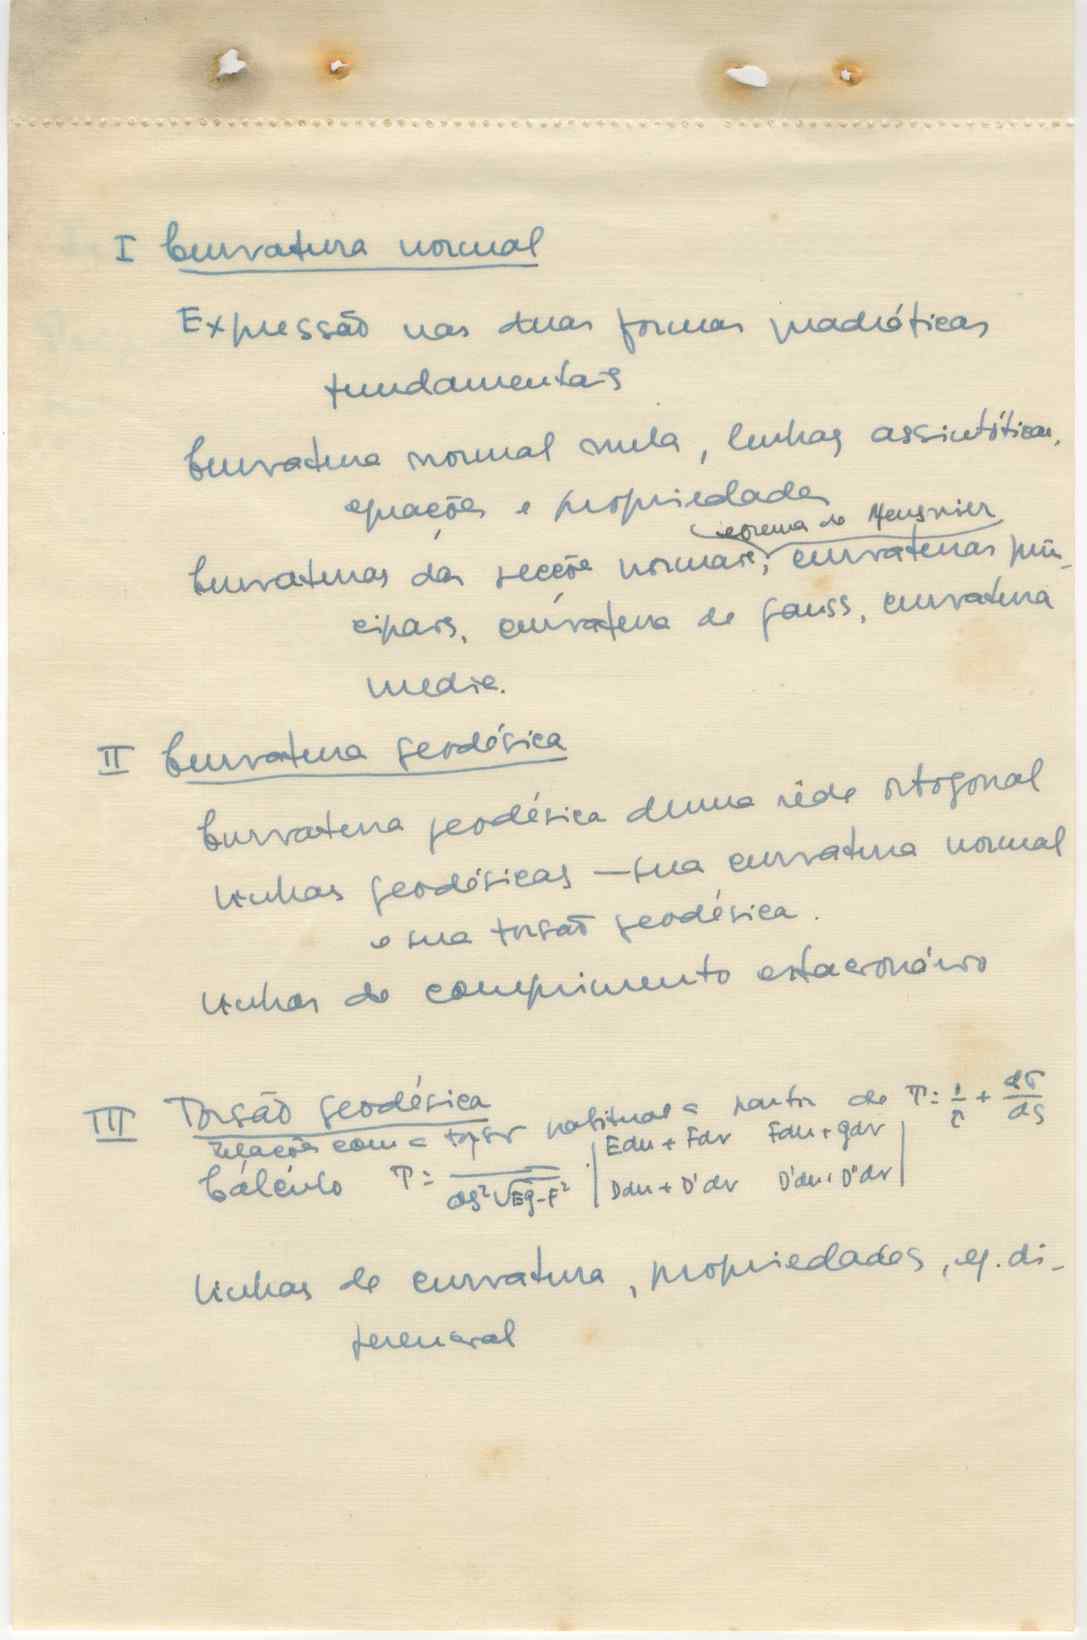 I Curvatura normal
Expressão nas duas formas quadráticas
fundamentais
Curvatura normal nula, linhas assintóticas,
equações e propriedades
teorema de Meusnier
Curvaturas das secções normais; curvaturas prin-
cipais, curvatura de Gauss, curvatura
media.
II Curvatura geodésica
Curvatura geodésica duma rêde ortogonal
Linhas geodésicas — sua curvatura normal
e sua torsão geodésica.
Linhas de comprimento estacionário
III Torsão geodésica
relações com a torsão habitual a partir de T = 1/r + dσ/ds
Cálculo T = 1/(ds² √(Eg-F²)) · | Edu + Fdv Fdu + gdv |
| Ddu + D'dv D'du + D''dv |
Linhas de curvatura, propriedades, eq. di-
ferencial